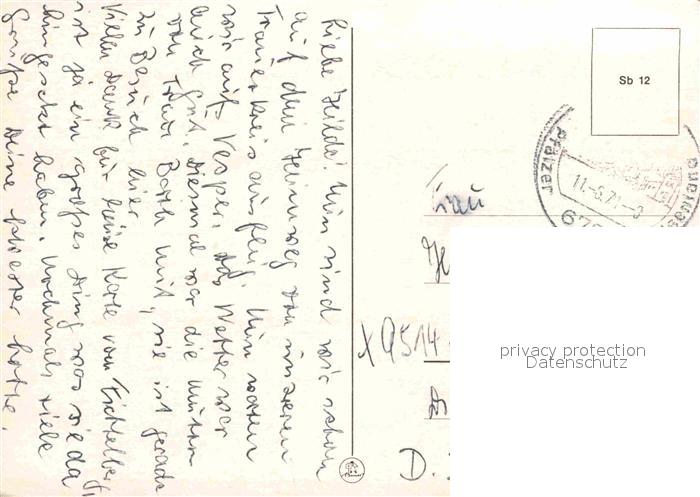 Liebe Hilde! Nun sind wir schon
auf dem Heimweg von unserem
Frauenkreisausflug. Nun warten
wir auf's Vesper, das Wetter war
auch gut. Diesmal war die Mutter
von Traudl Barth mit, sie ist gerade
zu Besuch hier.
Vielen Dank für Deine Karte vom Fichtelberg,
ist ja ein großes Ding was sie da
hingesetzt haben. Nochmals viele
Grüße Deine Schwester Lotte.
Sb 12
Pfälzer
11.-6.7
Frau
X 9514
D.
privacy protection
Datenschutz